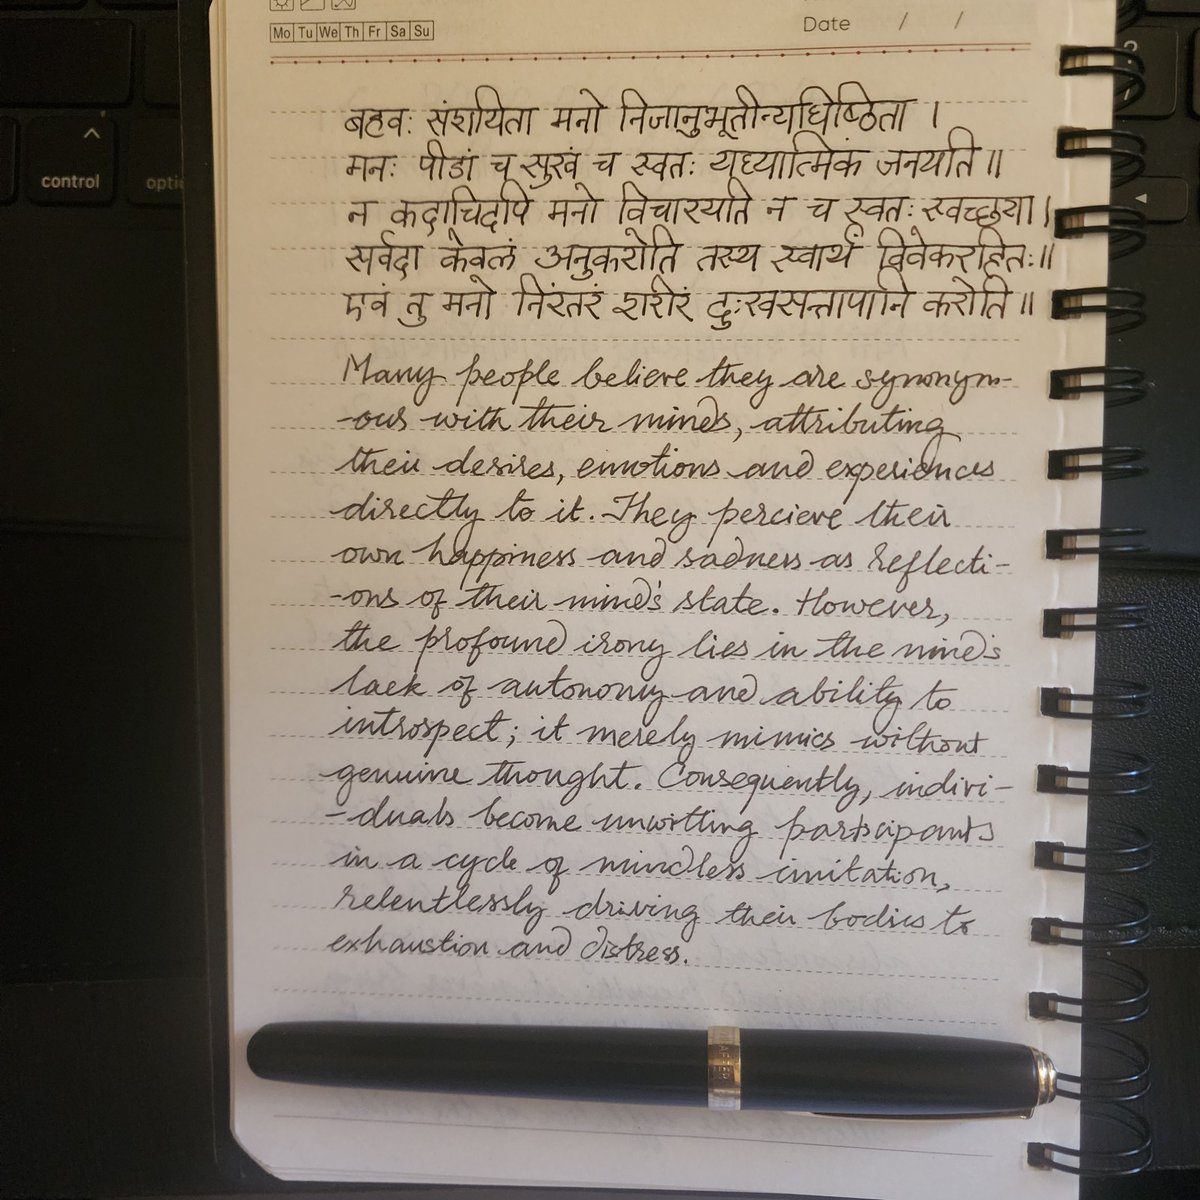 Mo Tu We Th Fr Sa Su
Date / /
बहवः संशयिता मनो निजानुभूतीन्यधिष्ठिता ।
मनः पीडां च सुखं च स्वतः यध्यात्मिकं जनयति ॥
न कदाचिदपि मनो विचारयति न च स्वतः स्वच्छया ।
सर्वदा केवलं अनुकरोति तस्य स्वार्थं विवेकरहितः ॥
एवं तु मनो निरंतरं शरीरं दुःखसन्तापानि करोति ॥
Many people believe they are synonym-
-ous with their minds, attributing
their desires, emotions and experiences
directly to it. They percieve their
own happiness and sadness as reflecti-
-ons of their mind's state. However,
the profound irony lies in the mind's
lack of autonomy and ability to
introspect; it merely mimics without
genuine thought. Consequently, indivi-
-duals become unwitting participants
in a cycle of mindless imitation,
relentlessly driving their bodies to
exhaustion and distress.
control